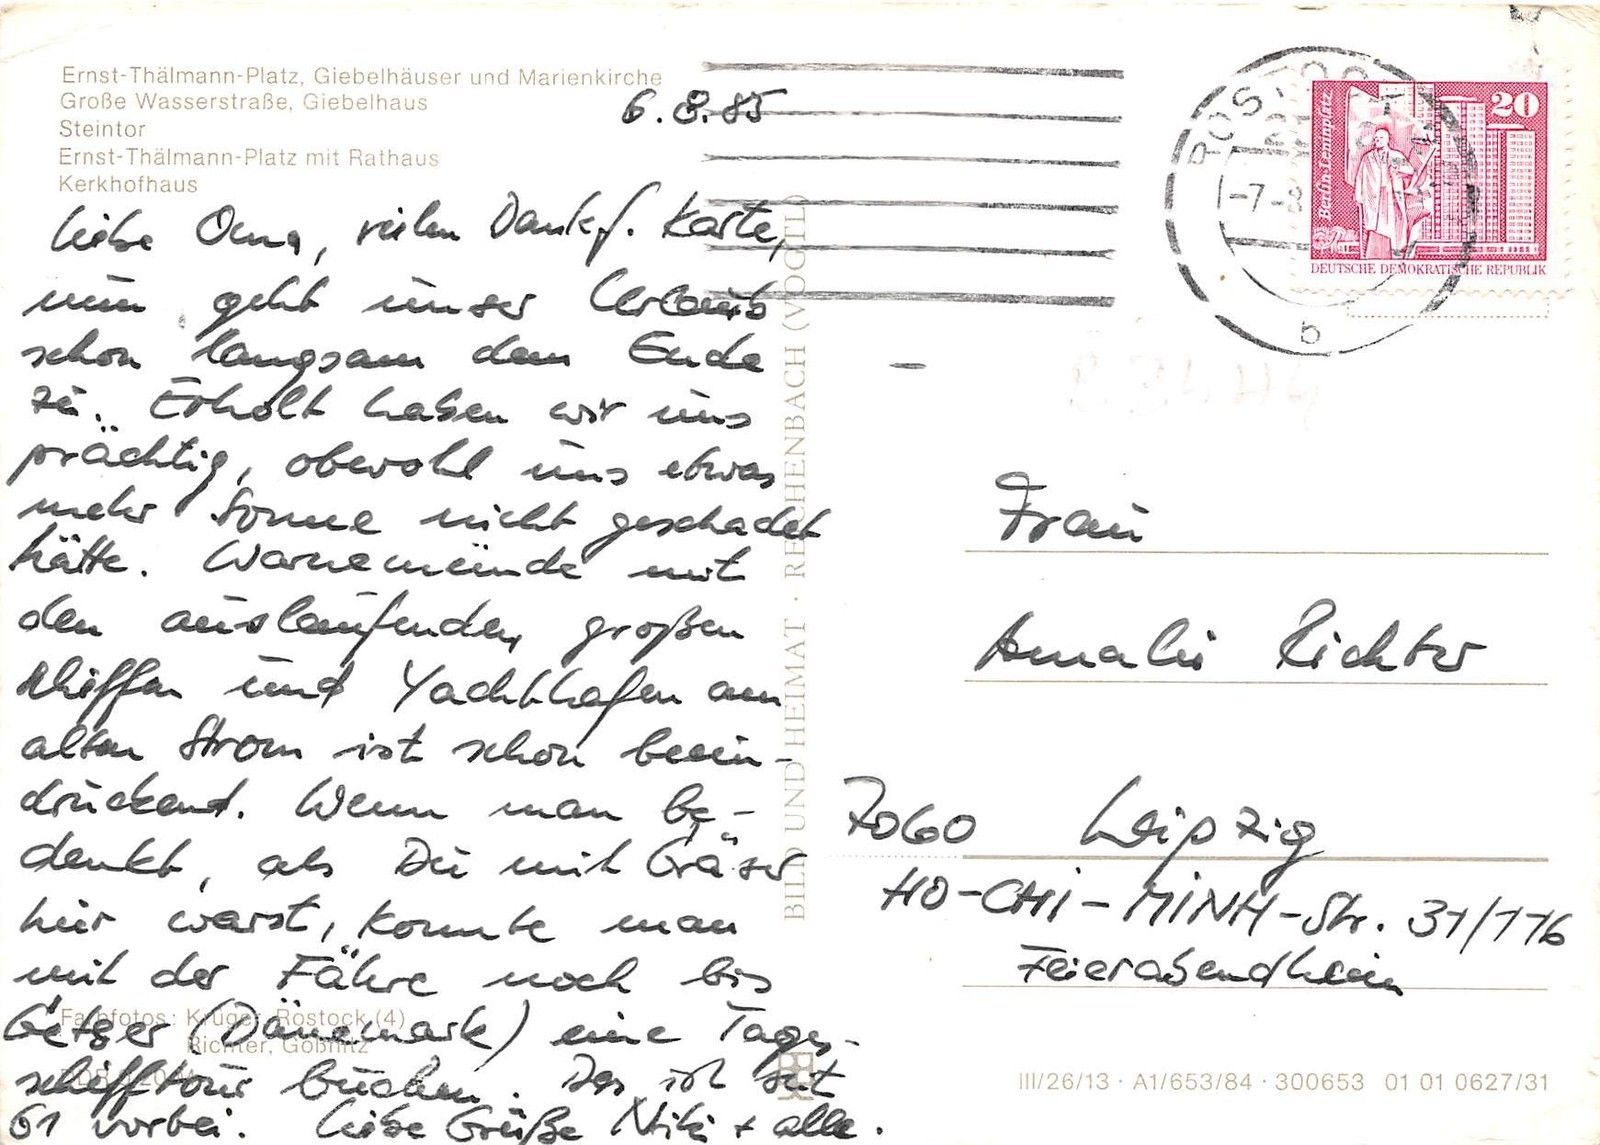 Ernst-Thälmann-Platz, Giebelhäuser und Marienkirche
Große Wasserstraße, Giebelhaus
Steintor
Ernst-Thälmann-Platz mit Rathaus
Kerkhofhaus
6.8.85
Liebe Oma, vielen Dank f. Karte,
nun geht unser Urlaub
schon langsam dem Ende
zu. Erholt haben wir uns
prächtig, obwohl uns etwas
mehr Sonne nicht geschadet
hätte. Warnemünde mit
den auslaufenden, großen
Schiffen und Yachthafen am
alten Strom ist schon beein-
druckend. Wenn man be-
denkt, als Du mit Gräser
hier warst, konnte man
mit der Fähre noch bis
(Dänemark) eine Tages-
schifftour buchen. Das ist seit
61 vorbei. Liebe Grüße Niki + alle.
Farbfotos: Krüger, Rostock (4)
Richter, Gößnitz
BILD UND HEIMAT · REICHENBACH (VOGTL)
ROSTOCK
-7-8
b
20
Berlin-Leninplatz
DEUTSCHE DEMOKRATISCHE REPUBLIK
Frau
Amalie Richter
7060 Leipzig
HO-CHI-MINH-Str. 31/116
Feierabendheim
III/26/13 · A1/653/84 · 300653 01 01 0627/31